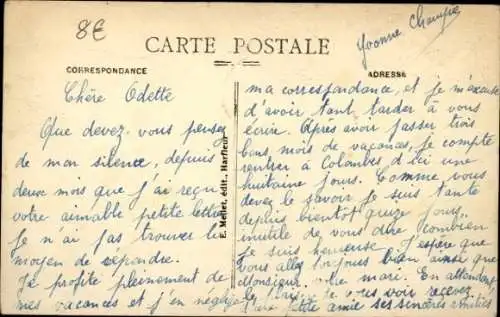 8€
Yvonne
CARTE POSTALE
CORRESPONDANCE
ADRESSE
Chère Odette
Que devez vous penser
de mon silence, depuis
deux mois que j'ai reçu
votre aimable petite lettre
Je n'ai pas trouver le
moyen de répondre.
Je profite pleinement de
mes vacances et j'en néglige
E. Mellet, édit., Harfleur
ma correspondance, et je m'excuse
d'avoir tant tarder à vous
écrire. Apres avoir passer trois
bons mois de vacances, je compte
rentrer à Colombes d'ici une
huitaine jours. Comme vous
devez le savoir je suis tante
depuis bientôt quize jours,
inutile de vous dire combien
je suis heureuse. J'espère que
vous allez toujours bien ainsi que
Monsieur votre mari. En attendant
le de vous voir recevez
d'une petite amie ses sincères amitiés